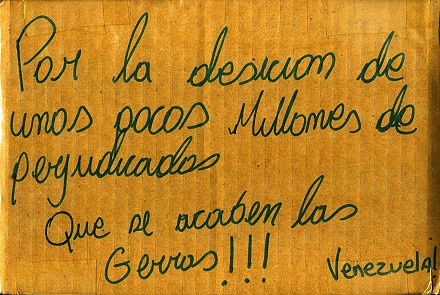 Por la desicion de
unos pocos Millones de
perjudicados
Que se acaben las
Gerras!!!
Venezuela!